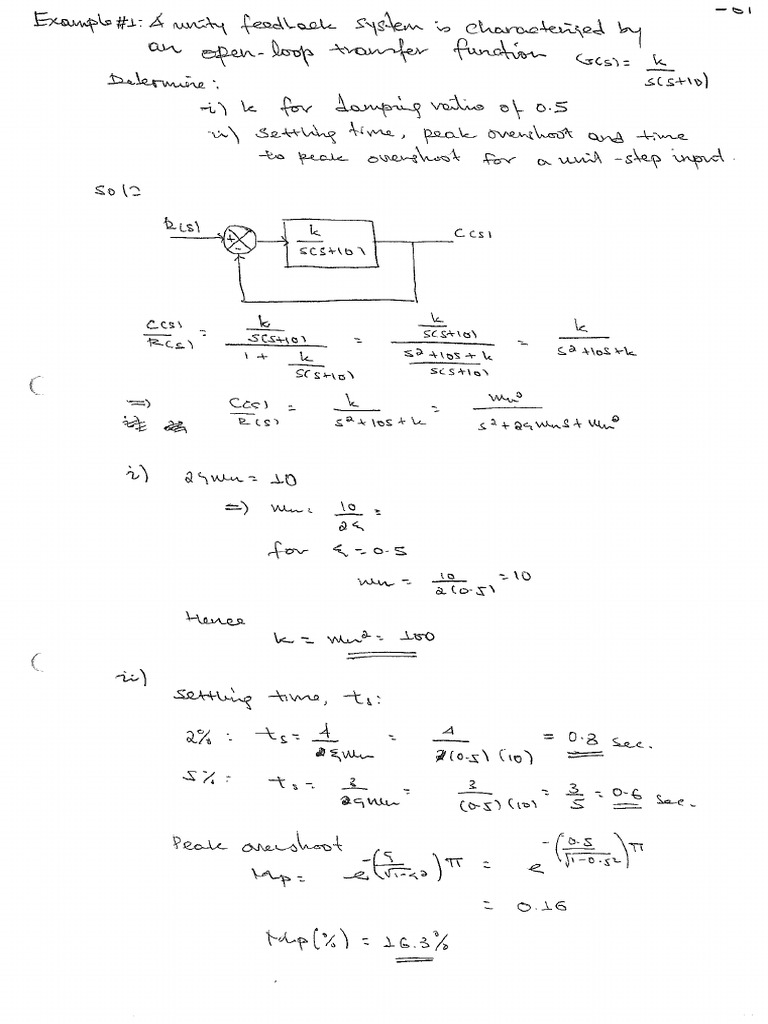 -01
Example #1: A unity feedback system is characterized by
an open-loop transfer function G(s) = k / s(s+10)
Determine:
i) k for damping ratio of 0.5
ii) settling time, peak overshoot and time
to peak overshoot for a unit-step input.
Sol=
R(s) + - k / s(s+10) C(s)
C(s)/R(s) = (k / s(s+10)) / (1 + k / s(s+10)) = (k / s(s+10)) / ((s²+10s+k) / s(s+10)) = k / (s²+10s+k)
=> C(s)/R(s) = k / (s²+10s+k) = ωn² / (s²+2ξωns+ωn²)
i) 2ξωn = 10
=> ωn = 10/2ξ =
for ξ = 0.5
ωn = 10 / 2(0.5) = 10
Hence
k = ωn² = 100
ii)
Settling time, ts:
2% : ts = 4 / ξωn = 4 / (0.5)(10) = 0.8 sec.
5% : ts = 3 / 2ξωn = 3 / (0.5)(10) = 3/5 = 0.6 sec.
Peak overshoot
Mp = e^-(ξ/√1-ξ²)π = e^-(0.5/√1-0.5²)π
= 0.16
Mp(%) = 16.3%